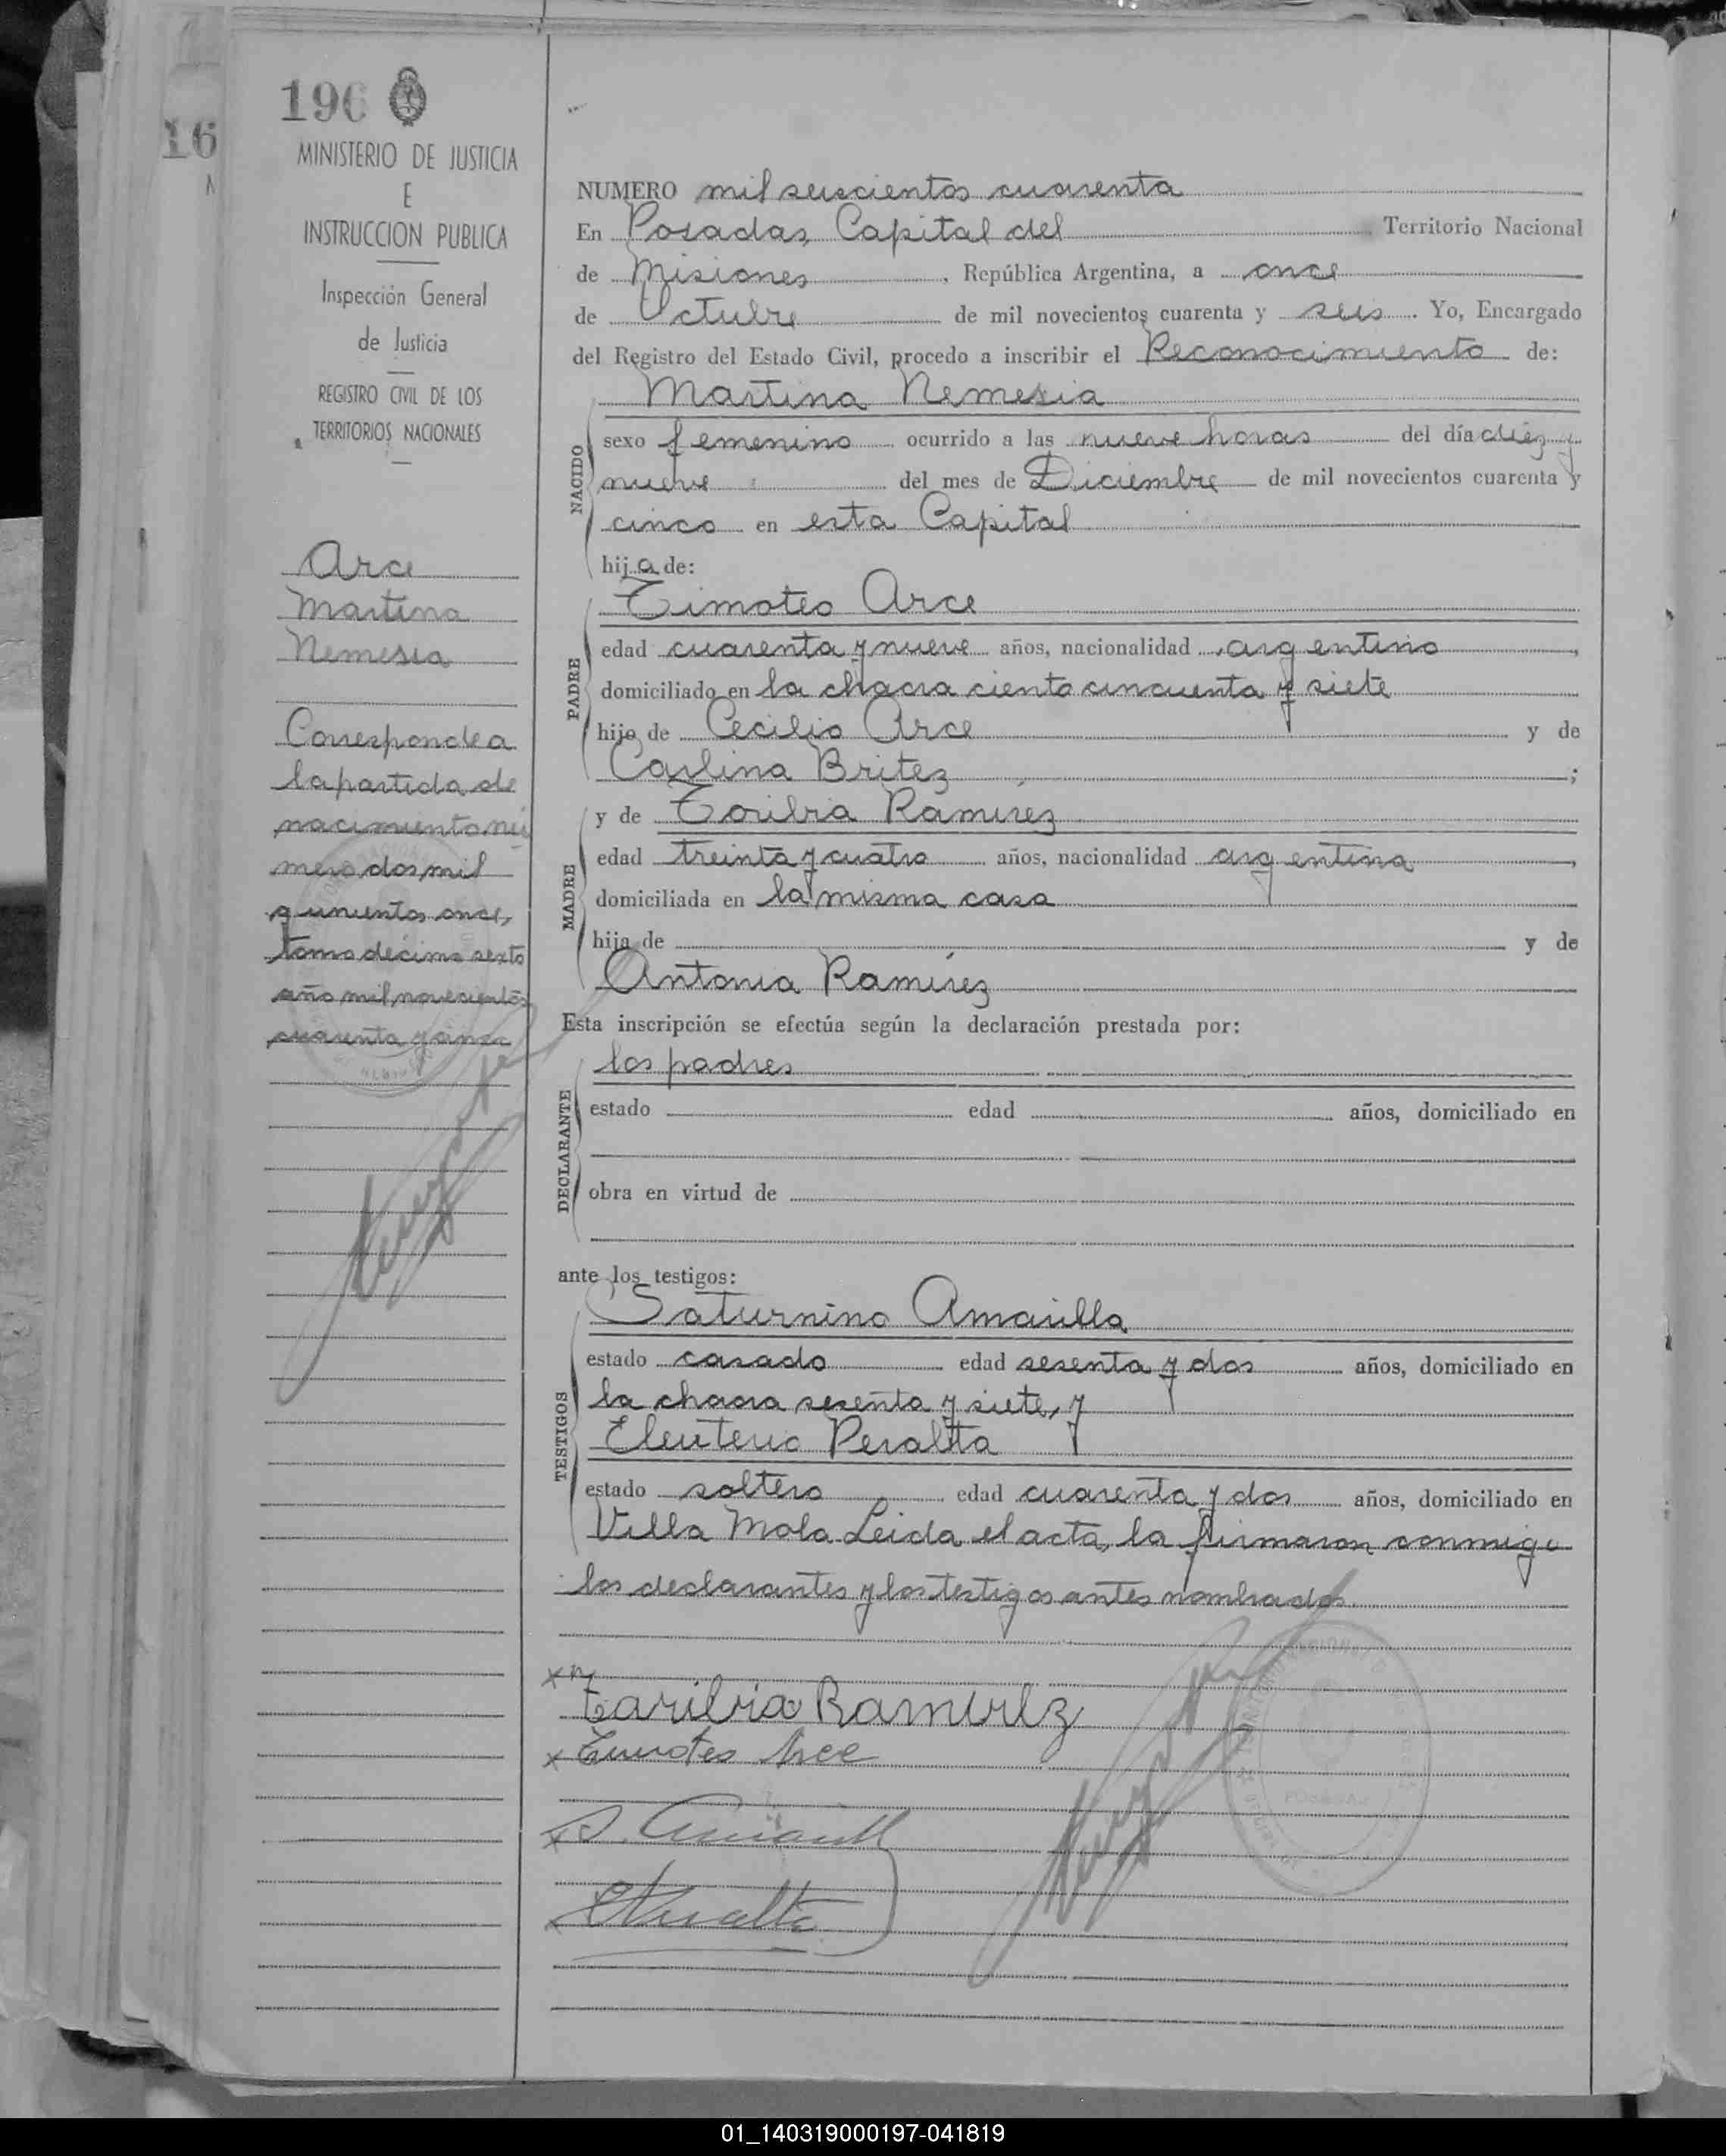 196
16
MINISTERIO DE JUSTICIA
E
INSTRUCCION PUBLICA
Inspección General
de Justicia
REGISTRO CIVIL DE LOS
TERRITORIOS NACIONALES
Arce
Martina
Nemesia
Corresponde a
la partida de
nacimiento nú
mero dos mil
quinientos once,
tomo décimo sexto
año mil novecientos
cuarenta y cinco
NUMERO mil seiscientos cuarenta
En Posadas, Capital del Territorio Nacional
de Misiones, República Argentina, a once
de Octubre de mil novecientos cuarenta y seis. Yo, Encargado
del Registro del Estado Civil, procedo a inscribir el Reconocimiento de:
NACIDO
Martina Nemesia
sexo femenino ocurrido a las nueve horas del día diez y
nueve del mes de Diciembre de mil novecientos cuarenta y
cinco en esta Capital
hija de:
PADRE
Timoteo Arce
edad cuarenta y nueve años, nacionalidad argentino,
domiciliado en la chacra ciento cincuenta y siete
hijo de Cecilio Arce y de
Carlina Britez;
MADRE
y de Toribia Ramírez
edad treinta y cuatro años, nacionalidad argentina,
domiciliada en la misma casa
hija de y de
Antonia Ramírez
Esta inscripción se efectúa según la declaración prestada por:
DECLARANTE
los padres
estado edad años, domiciliado en
obra en virtud de
ante los testigos:
TESTIGOS
Saturnino Amarilla
estado casado edad sesenta y dos años, domiciliado en
la chacra sesenta y siete, y
Eleuterio Peralta
estado soltero edad cuarenta y dos años, domiciliado en
Villa Mola. Leida el acta, la firmaron conmigo
los declarantes y los testigos antes nombrados.
Toribia Ramirez
Timoteo Arce
S. Amarill
E Peralta
01_140319000197-041819